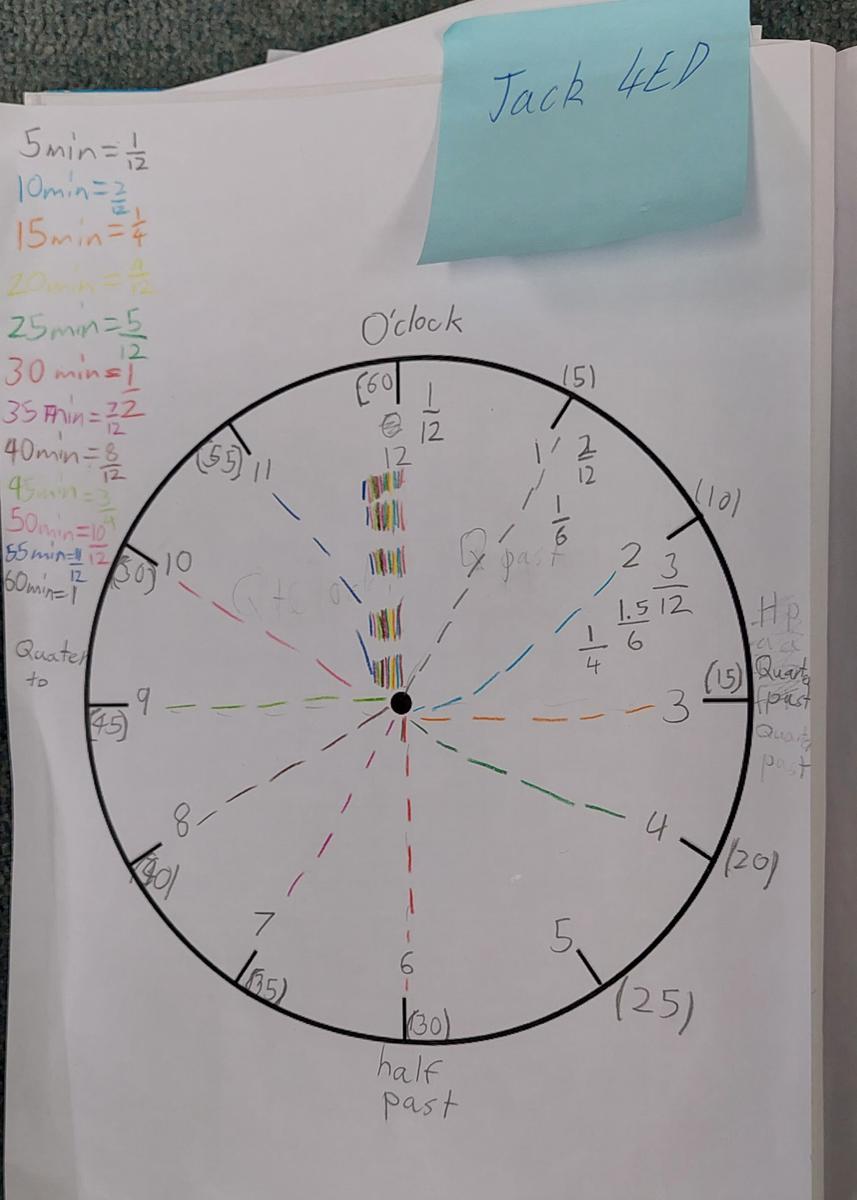 Jack 4ED
5min=1/12
10min=2/12
15min=1/4
20min=4/12
25min=5/12
30 min=1/2
35 min=7/12
40min=8/12
45min=3/4
50min=10/12
55min=11/12
60min=1
O'clock
(60)
1/12
12
(5)
1
2/12
1/6
(10)
2
3/12
1.5/6
1/4
Q past
(55)
11
10
(15)
3
Quart
past
Quart
past
Quater
to
(45)
9
8
(40)
4
(20)
7
(35)
5
(25)
6
(30)
half
past